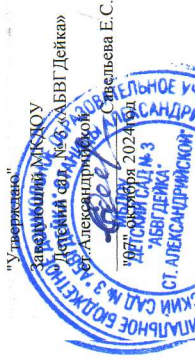 "Утверждаю"
Заведующий МКДОУ
"Детский сад № 3 «АБВГДейка»
ст.Александрийской
Савельева Е.С.
"07" октября 2024год
ДЕТСКИЙ САД № 3
"АБВГДЕЙКА"
СТ. АЛЕКСАНДРИЙСКОЙ